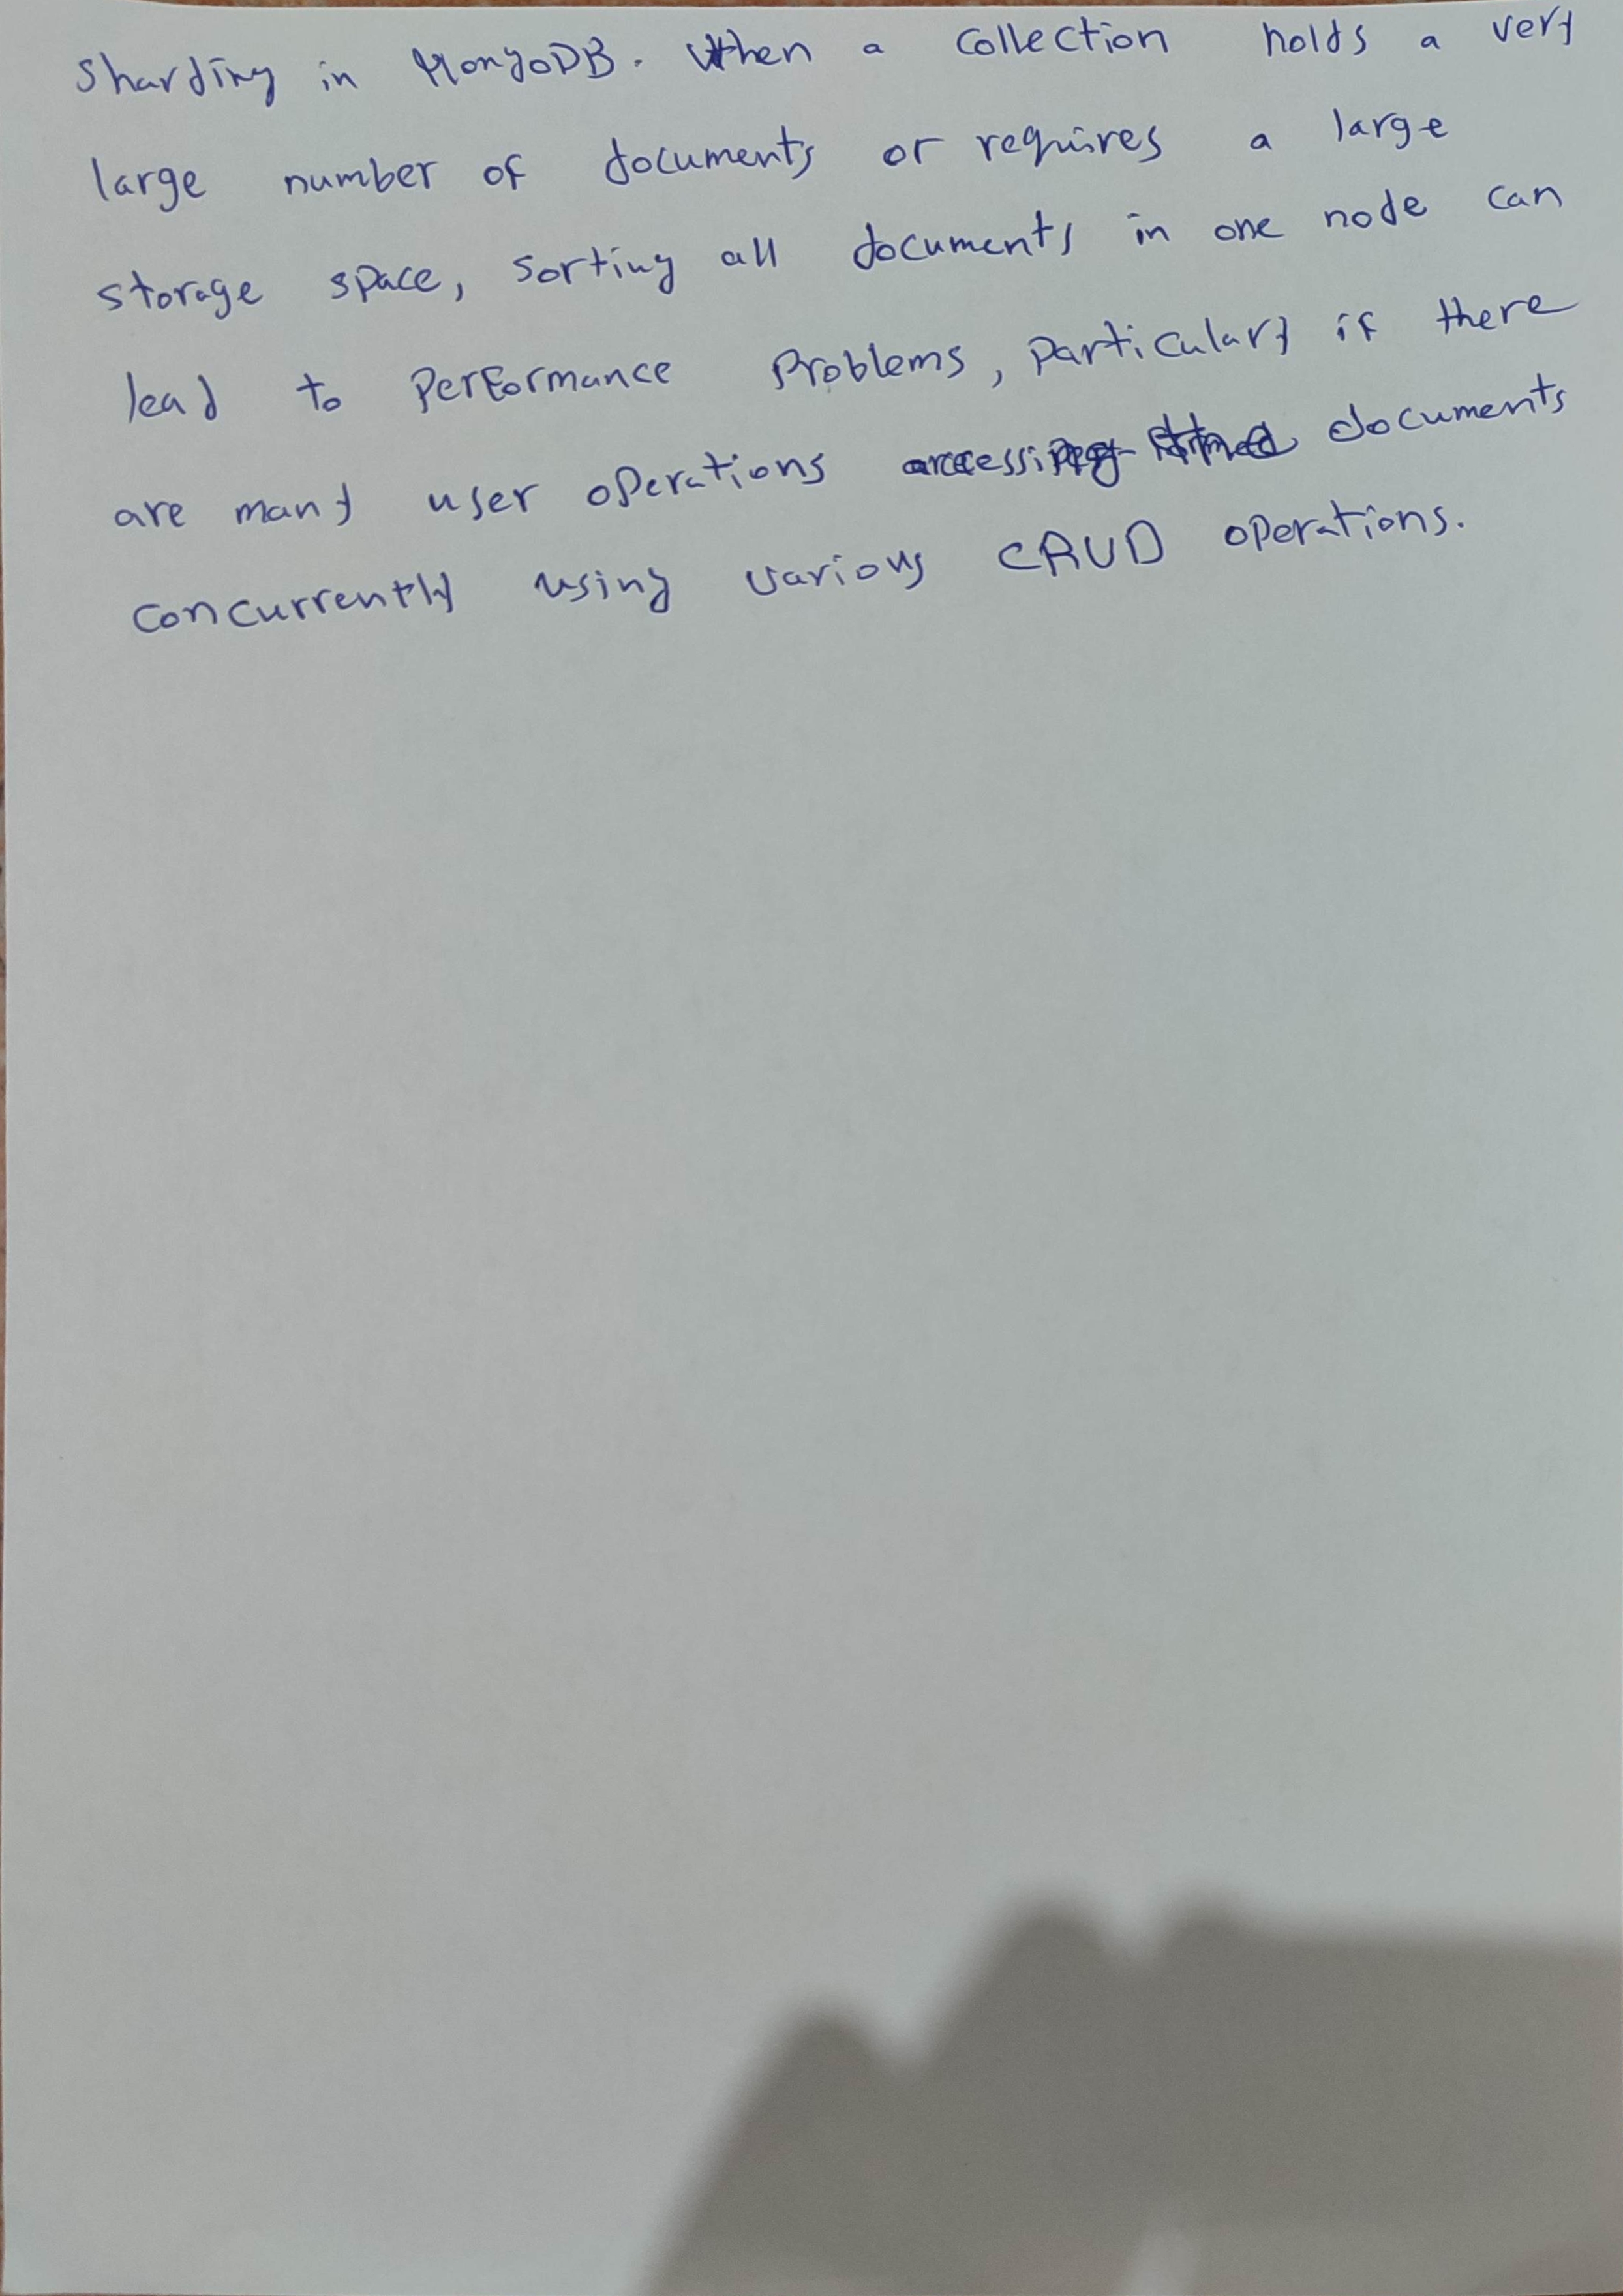 Sharding in MongoDB. When a collection holds a very
large number of documents or requires a large
storage space, sorting all documents in one node can
lead to Performance Problems, particulary if there
are many user operations accessing documents
concurrently using various CRUD operations.